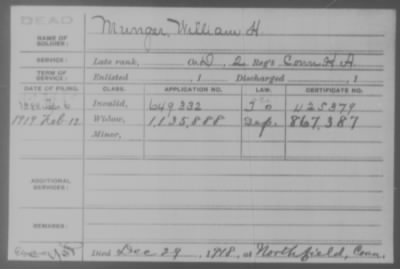 DEAD
NAME OF SOLDIER: Munger, William H.
SERVICE: Late rank, Co. D, 2 Reg't Conn H A
TERM OF SERVICE: Enlisted , 1 Discharged , 1
DATE OF FILING. CLASS. APPLICATION NO. LAW. CERTIFICATE NO.
Invalid, 649,332 425379
1919 Feb-12 Widow, 1,135,888 867,387
Minor,
ADDITIONAL SERVICES:
REMARKS:
Died Dec 29, 1918, at Northfield, Conn.